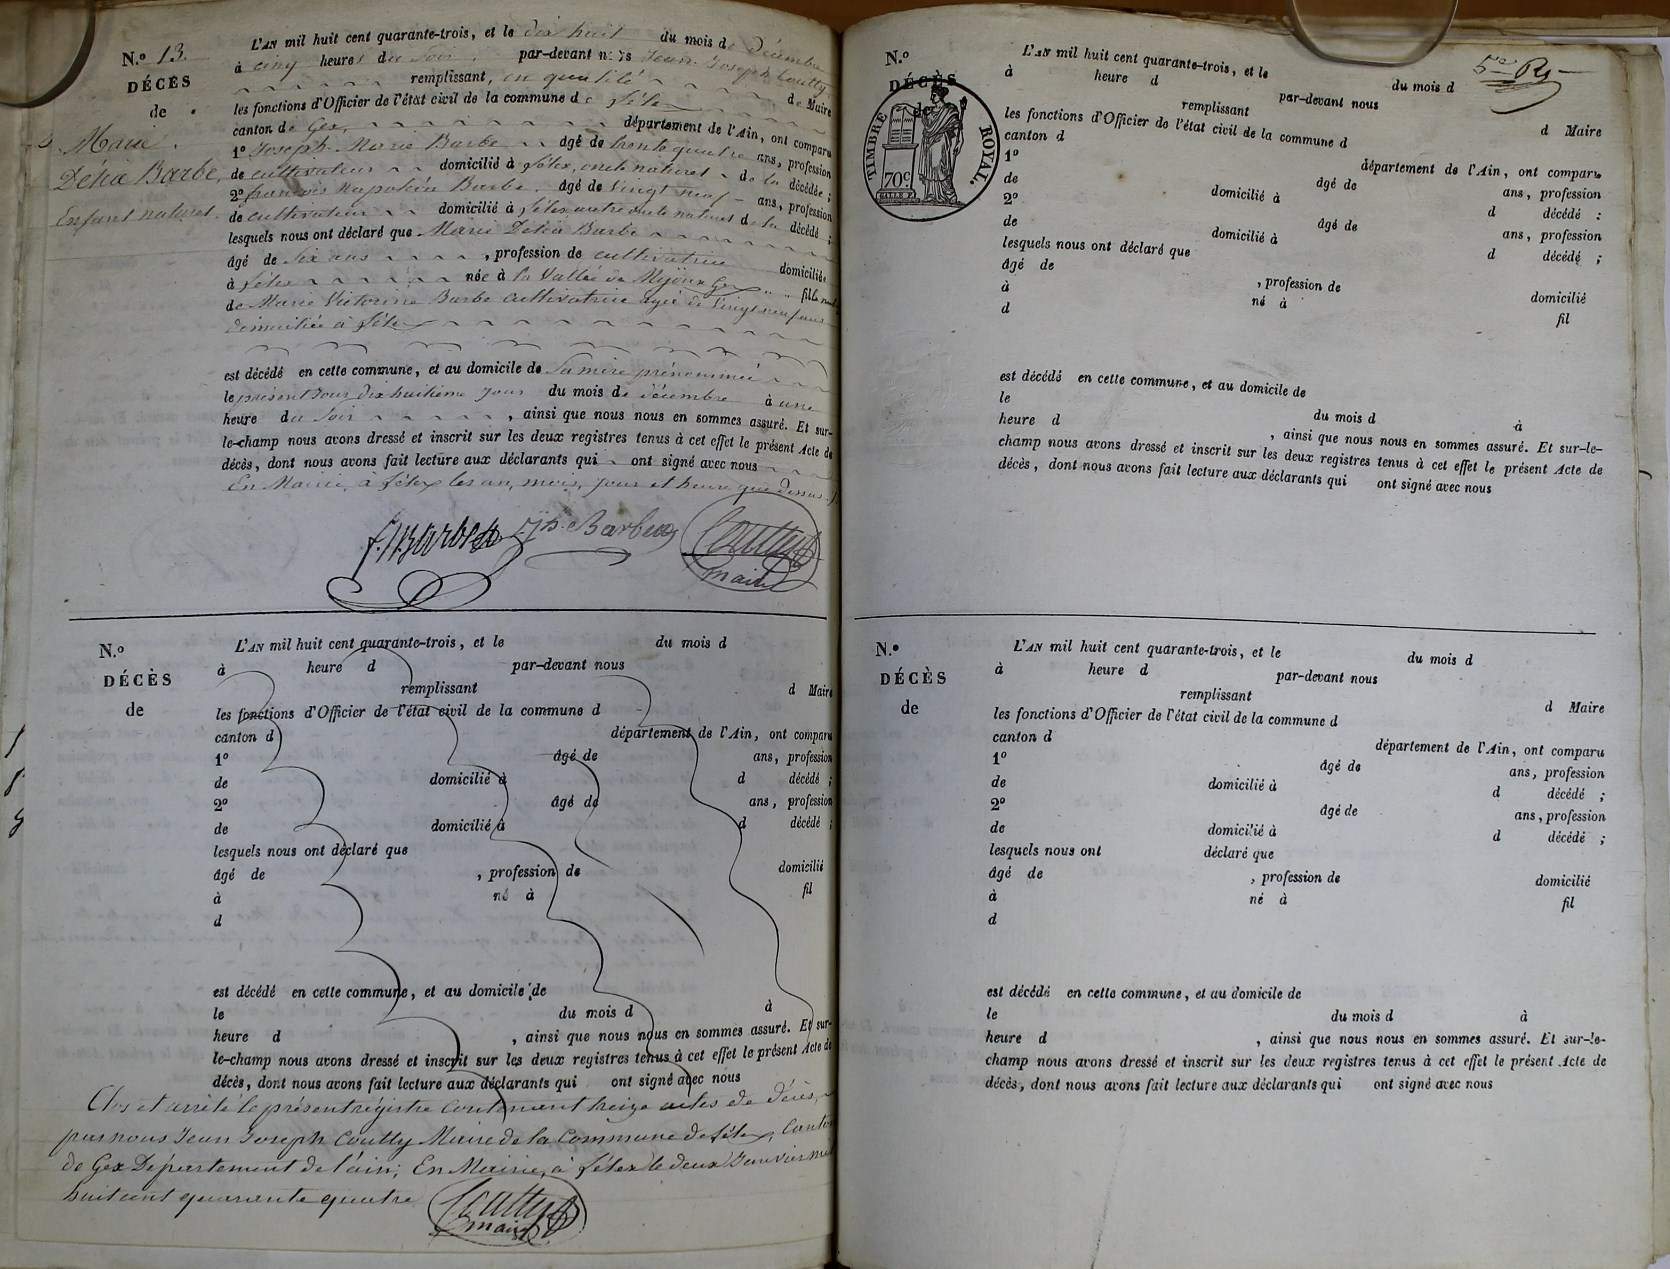 N.o 13.
DÉCÈS
de
Marie
Délia Barbe,
Enfant naturel.
L'AN mil huit cent quarante-trois, et le dix huit du mois de Décembre
à cinq heures du Soir par-devant nous Jean Joseph Coutty
remplissant, en qualité de Maire
les fonctions d'Officier de l'état civil de la commune de
canton de Gex, département de l'Ain, ont comparu
1o Joseph Marie Barbe âgé de trente quatre ans, profession
de cultivateur domicilié à oncle naturel de la décédée ;
2o françois Napoléon Barbe. âgé de Vingt neuf ans, profession
de cultivateur domicilié à autre oncle naturel de la décédé ;
lesquels nous ont déclaré que Marie Délia Barbe
âgé de six ans , profession de cultivatrice domiciliée
à née à la Vallée de Mijoux Gex fille
de Marie Victorine Barbe cultivatrice agée de Vingt neuf ans
domiciliée à
est décédé en cette commune, et au domicile de Sa mère prénommée
le présent Jour dix huitième jour du mois de décembre à une
heure du Soir , ainsi que nous nous en sommes assuré. Et sur-
le-champ nous avons dressé et inscrit sur les deux registres tenus à cet effet le présent Acte de
décès, dont nous avons fait lecture aux déclarants qui ont signé avec nous
En Mairie, à les an, mois, jour et heure que dessus.
f. N Barbe Jh. Barbe Coutty
maire
N.o
DÉCÈS
de
L'AN mil huit cent quarante-trois, et le du mois d
à heure d par-devant nous
remplissant d Maire
les fonctions d'Officier de l'état civil de la commune d
canton d département de l'Ain, ont comparu
1o âgé de ans, profession
de domicilié à d décédé ;
2o âgé de ans, profession
de domicilié à d décédé ;
lesquels nous ont déclaré que
âgé de , profession de domicilié
à né à fil
d
est décédé en cette commune, et au domicile de
le du mois d à
heure d , ainsi que nous nous en sommes assuré. Et sur-
le-champ nous avons dressé et inscrit sur les deux registres tenus à cet effet le présent Acte de
décès, dont nous avons fait lecture aux déclarants qui ont signé avec nous
Clos et arrêté le présent régistre contenant treize actes de Décès,
par nous Jean Joseph Coutty Maire de la Commune de Canton
de Gex Departement de l'ain; En Mairie, à le deux Janvier mil
huit cent quarante quatre
Coutty
maire
N.o
DÉCÈS
de
TIMBRE ROYAL.
70c
L'AN mil huit cent quarante-trois, et le du mois d
à heure d par-devant nous
remplissant d Maire
les fonctions d'Officier de l'état civil de la commune d
canton d département de l'Ain, ont comparu
1o âgé de ans, profession
de domicilié à d décédé :
2o âgé de ans, profession
de domicilié à d décédé ;
lesquels nous ont déclaré que
âgé de , profession de domicilié
à né à fil
d
est décédé en cette commune, et au domicile de
le du mois d à
heure d , ainsi que nous nous en sommes assuré. Et sur-le-
champ nous avons dressé et inscrit sur les deux registres tenus à cet effet le présent Acte de
décès, dont nous avons fait lecture aux déclarants qui ont signé avec nous
N.o
DÉCÈS
de
L'AN mil huit cent quarante-trois, et le du mois d
à heure d par-devant nous
remplissant d Maire
les fonctions d'Officier de l'état civil de la commune d
canton d département de l'Ain, ont comparu
1o âgé de ans, profession
de domicilié à d décédé ;
2o âgé de ans, profession
de domicilié à d décédé ;
lesquels nous ont déclaré que
âgé de , profession de domicilié
à né à fil
d
est décédé en cette commune, et au domicile de
le du mois d à
heure d , ainsi que nous nous en sommes assuré. Et sur-le-
champ nous avons dressé et inscrit sur les deux registres tenus à cet effet le présent Acte de
décès, dont nous avons fait lecture aux déclarants qui ont signé avec nous